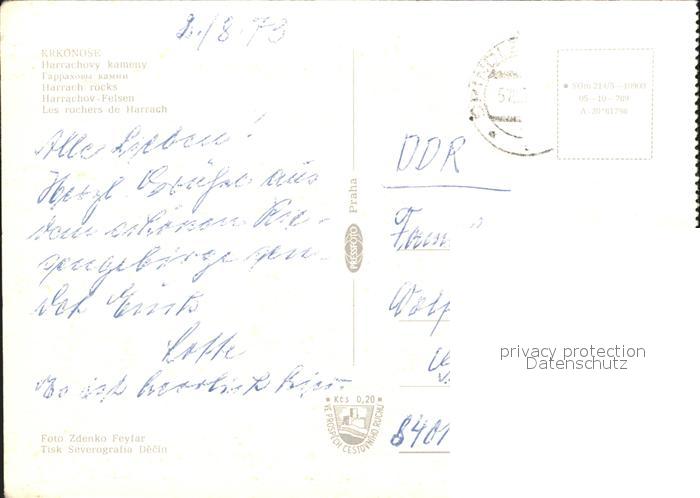 2./8.73
KRKONOŠE
Harrachovy kameny
Гарраховы камни
Harrach rocks
Harrachov-Felsen
Les rochers de Harrach
Alle Lieben!
Herzl. Grüße aus
dem schönen Rie-
sengebirge sen-
det Euch
Lotte
Es ist herrlich hier.
Foto Zdenko Feyfar
Tisk Severografia Děčín
Praha
PRESSFOTO
Kčs 0,20
VE PROSPĚCH CESTOVNÍHO RUCHU
SÚm 21405—10903
05—10—709
DDR
Fam.
8401
privacy protection
Datenschutz